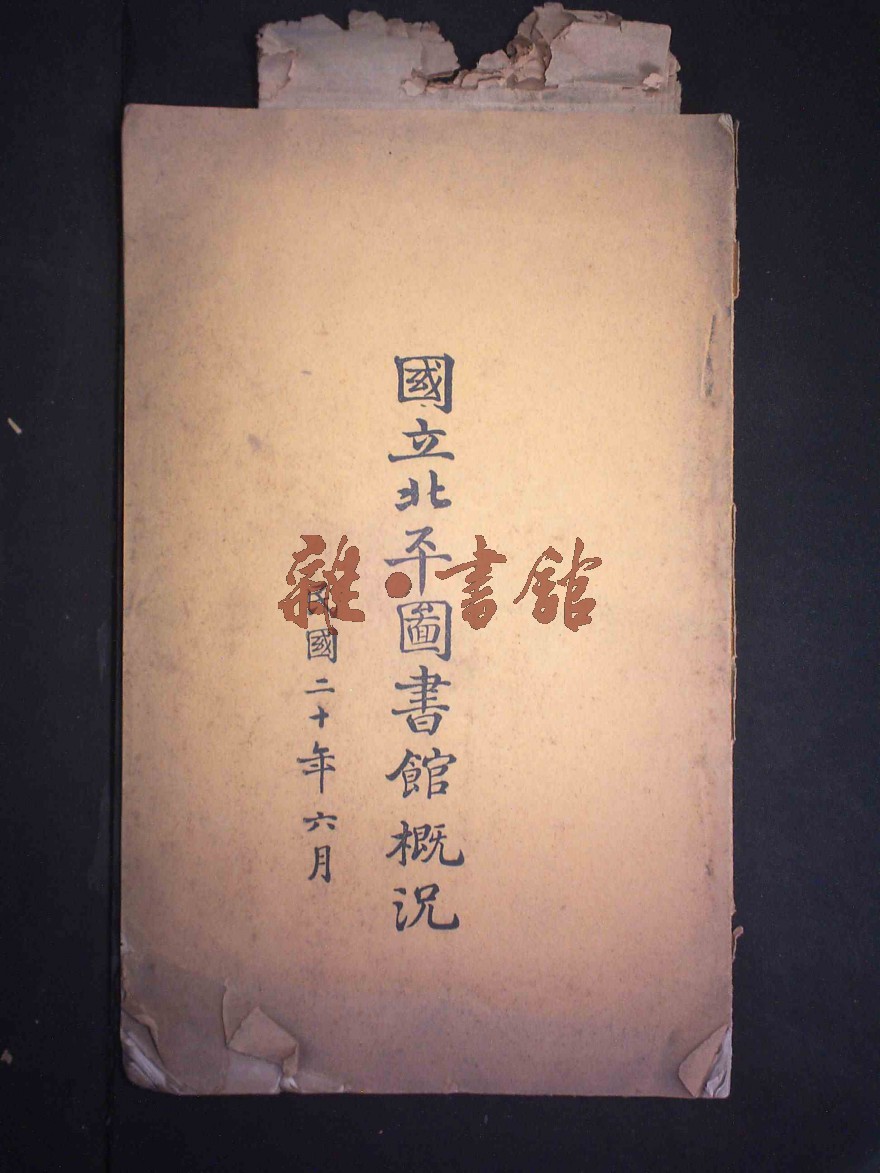 國立北平圖書館概况
民國二十年六月
雜·書館